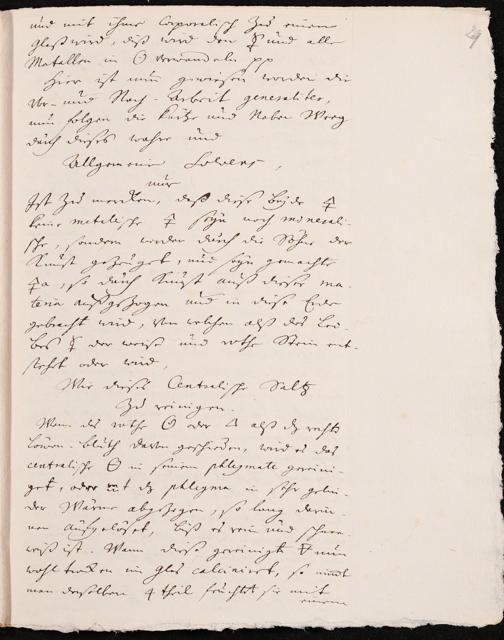 29
und mit ihme Corporalisch Zu einem
Glaß wird, diß wird den ☿ und alle
Metallen in ☉ verwandeln pp
Hier ist nun gewiesen worden die
Vor- und Nach-Arbeit generaliter,
nun folgen die kurtze und Neben Weeg
durch dieses wahre und
Allgemeine
nur
Ist Zu mercken, daß diese beyde 🜍
keine metallische 🜍 seyn noch minerali-
sche, sondern werden durch die Söhne der
Kunst gezeuget, und seyn gemachte
so durch Kunst auß dieser ma-
teria außgezogen und in diese Erde
gebracht wird, von welchen alß des Lei-
bes ☿ der weiße und rothe Stein ent-
stehet oder wird,
Wie dieses Centralische Saltz
Zu reinigen.
Wann das rothe der alß das rechte
Löwen-bluth davon geschieden, wird es das
centralische in seinem phlegmate gereini-
get, oder mit phlegma in sehr gelin-
der Wärme abgezogen, so lang darin-
nen aufgelöset, biß es rein und schnee-
weiß ist. Wann diese gereinigte nun
wohl troken im glas calciniret, so nimbt
man desselben 4 theil sie mit
einem